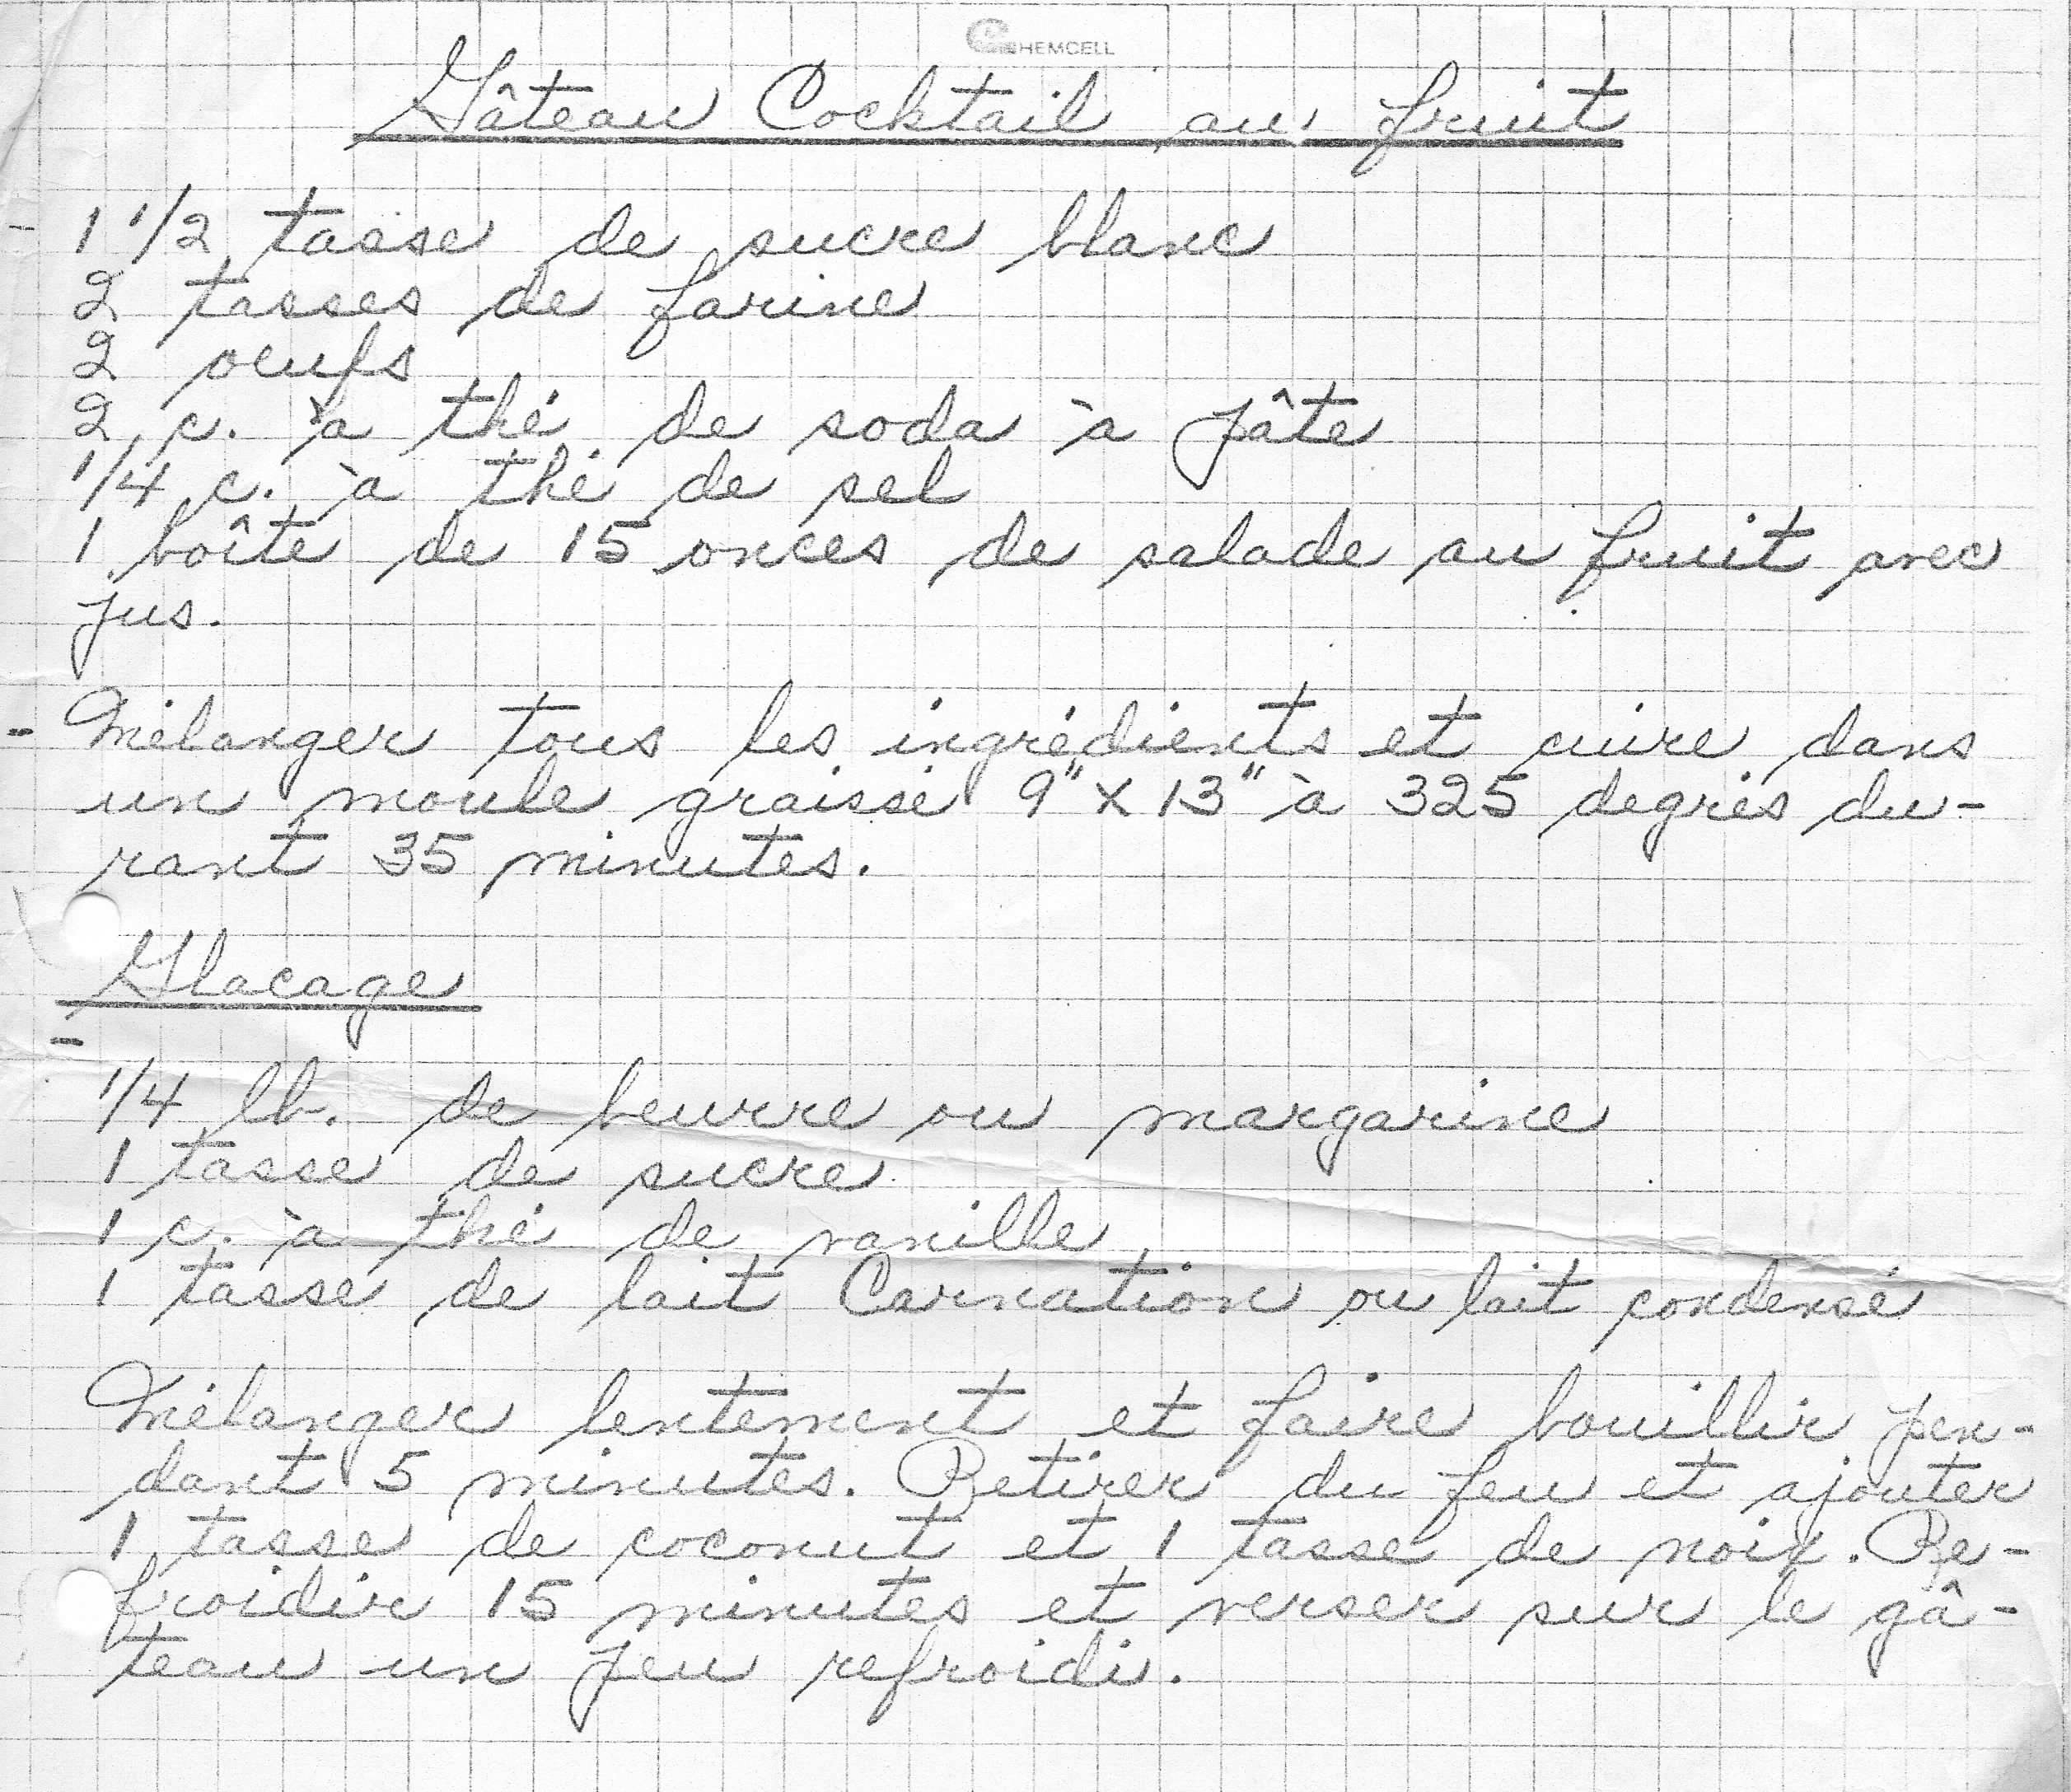 CHEMCELL
Gâteau Cocktail au fruit
- 1 1/2 tasse de sucre blanc
2 tasses de farine
2 oeufs
2 c. à thé de soda à pâte
1/4 c. à thé de sel
1 boîte de 15 onces de salade au fruit avec
jus.
- Mélanger tous les ingrédients et cuire dans
un moule graissé 9" x 13" à 325 degrés du-
rant 35 minutes.
Glacage
-
1/4 lb. de beurre ou margarine
1 tasse de sucre
1 c. à thé de vanille
1 tasse de lait Carnation ou lait condensé
Mélanger lentement et faire bouillir pen-
dant 5 minutes. Retirer du feu et ajouter
1 tasse de coconut et 1 tasse de noix. Re-
froidir 15 minutes et verser sur le gâ-
teau un peu refroidi.